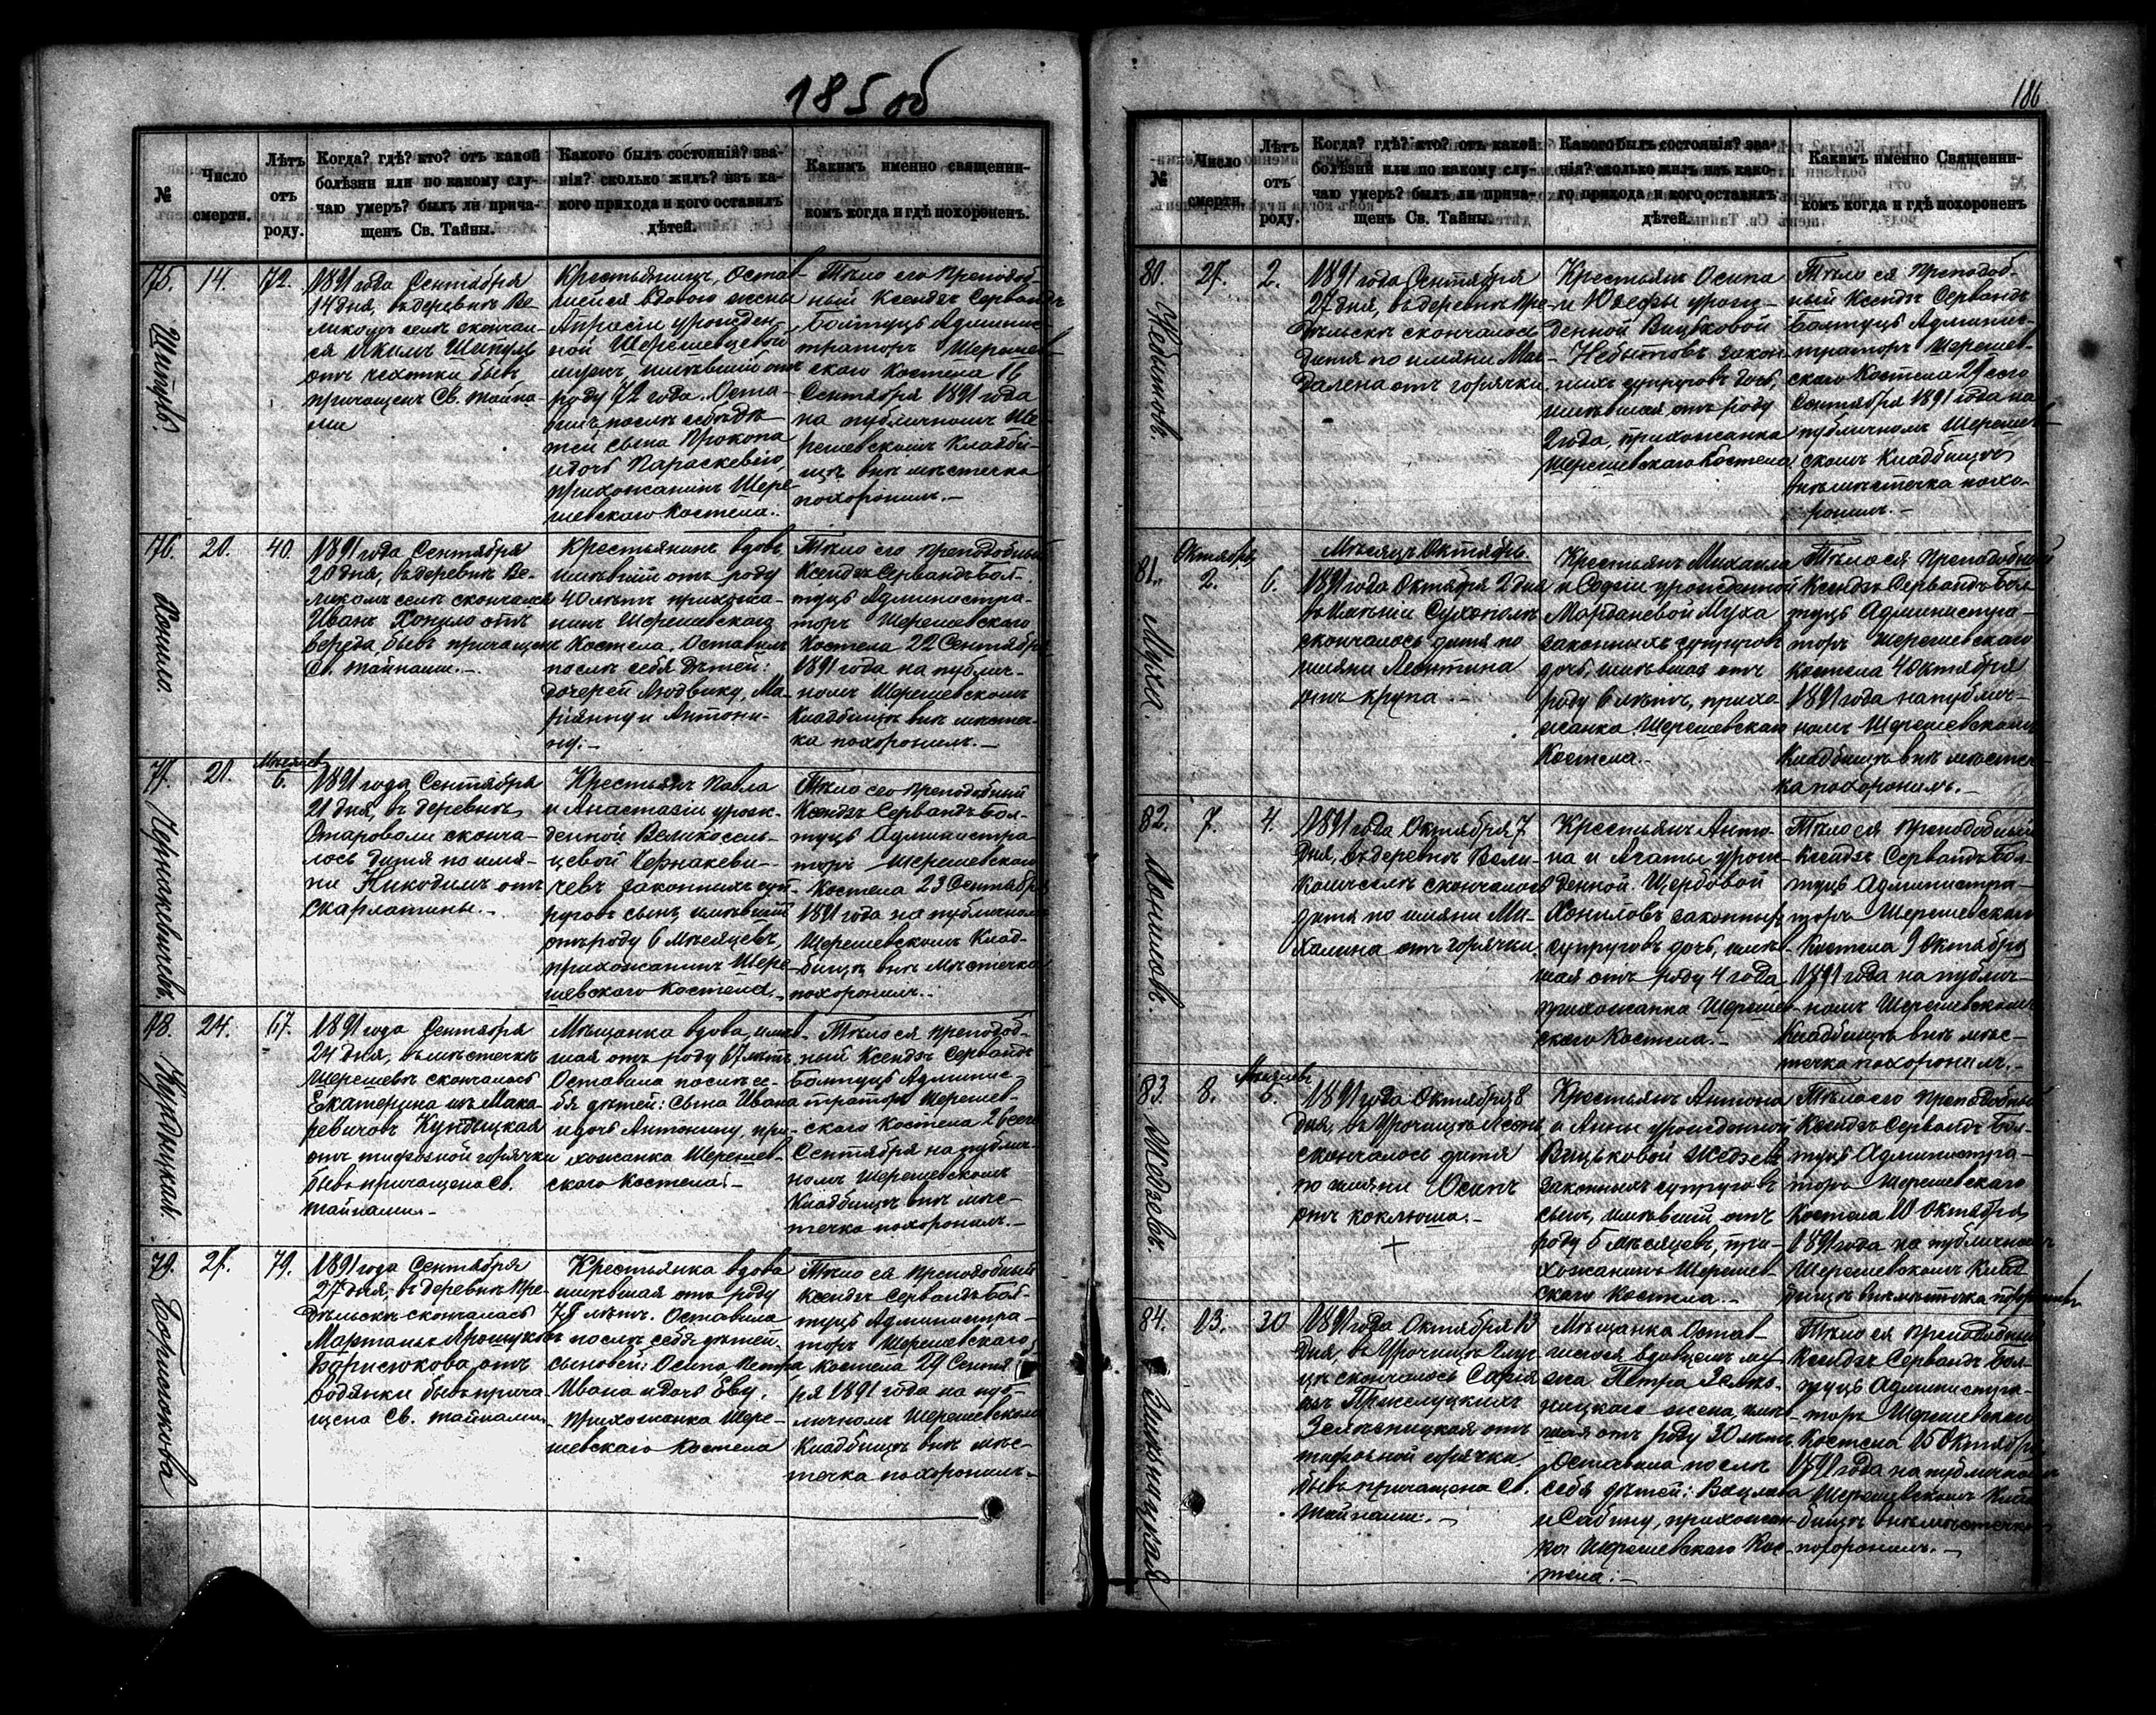 185 об
№
Число
смерти.
Лѣтъ
отъ
роду.
Когда? гдѣ? кто? отъ какой
болѣзни или по какому слу-
чаю умеръ? былъ ли прича-
щенъ Св. Тайны.
Какого былъ состоянія? зва-
нія? сколько жилъ? изъ ка-
кого прихода и кого оставилъ
дѣтей.
Какимъ именно священни-
комъ когда и гдѣ похороненъ.
75.
14.
72.
1891 года Сентября
14 дня, въ деревнѣ Ве-
ликомъ селѣ скончал-
ся Якимъ Шипулъ
отъ чехотки бывъ
причащенъ Св. тайна-
ми
Крестьянинъ, Остав-
шейся вдовою жены
Апросіи урожден-
ной Шерешевцевой
мужъ, имѣвшій отъ
роду 72 года. Оста-
вилъ послѣ себя дѣ-
тей сына Прокопа
и дочь Параскевію,
прихожанинъ Шере-
шевскаго Костела.
Тѣло его Преподоб-
ный Ксендзъ Сервандъ
Болтуць Админис-
траторъ Шерешев-
скаго Костела 16
Сентября 1891 года
на публичномъ Ше-
решевскомъ Кладби-
щѣ внѣ мѣстечка
похоронилъ.-
76.
Хонило.
20.
40.
1891 года Сентября
20 дня, въ деревнѣ Ве-
ликомъ селѣ скончался
Иванъ Хонило отъ
вереда, бывъ причащенъ
Св. тайнами.-
Крестьянинъ вдовъ
имѣвшій отъ роду
40 лѣтъ прихожа-
нинъ Шерешевскаго
Костела. Оставилъ
послѣ себя дѣтей:
дочерей Людвику, Ма-
ріянну и Антони-
ну.-
Тѣло его преподобный
Ксендзъ Сервандъ Бол-
туць Администра-
торъ Шерешевскаго
Костела 22 Сентября
1891 года на публич-
номъ Шерешевскомъ
Кладбищѣ внѣ мѣстеч-
ка похоронилъ.-
77.
Чернакевичевъ.
21.
Мѣсяцев
6.
1891 года Сентября
21 дня, въ деревнѣ
Староволи сконча-
лось дитя по имя-
ни Никодимъ отъ
скарлатины.-
Крестьянъ Павла
и Анастасіи урож-
денной Великосель-
цевой Чернакеви-
чевъ законныхъ суп-
руговъ сынъ, имѣвшій
отъ роду 6 Мѣсяцевъ,
прихожанинъ Шере-
шевскаго Костела.
Тѣло его преподобный
Ксендзъ Сервандъ Бол-
туць Администра-
торъ Шерешевскаго
Костела 23 Сентября
1891 года на публичномъ
Шерешевскомъ Клад-
бищѣ внѣ Мѣстечка
похоронилъ.-
78.
Кундыцкая.
24.
67.
1891 года Сентября
24 дня, въ мѣстечкѣ
Шерешевѣ скончалась
Екатерина изъ Мака-
ревичовъ Кундыцкая
отъ тифозной горячки
бывъ причащена Св.
тайнами.-
Мѣщанка вдова, имѣв-
шая отъ роду 67 лѣтъ.
Оставила послѣ се-
бя дѣтей: сына Ивана
и дочь Антонину, при-
хожанка Шерешев-
скаго Костела.-
Тѣло ея преподоб-
ный Ксендзъ Сервандъ
Болтуць Админис-
траторъ Шерешев-
скаго Костела 26 сего
Сентября на публич-
номъ Шерешевскомъ
Кладбищѣ внѣ мѣс-
течка похоронилъ.-
79.
Борисюкова
27.
79.
1891 года Сентября
27 дня, въ деревнѣ Пре-
дѣльскѣ скончалась
Борисюкова, отъ
водянки бывъ прича-
щена Св. тайнами.
Крестьянка вдова
имѣвшая отъ роду
79 лѣтъ. Оставила
послѣ себя дѣтей:
сыновей: Осипа Петра
Ивана и дочь Еву,
прихожанка Шере-
шевскаго Костела
Тѣло ея Преподобный
Ксендзъ Сервандъ Бол-
туць Администра-
торъ Шерешевскаго
Костела 29 Сентяб-
ря 1891 года на пуб-
личномъ Шерешевскомъ
Кладбищѣ внѣ мѣс-
течка похоронилъ.-
186
№
Число
смерти.
Лѣтъ
отъ
роду.
Когда? гдѣ? кто? отъ какой
болѣзни или по какому слу-
чаю умеръ? былъ ли прича-
щенъ Св. Тайны.
Какого былъ состоянія? зва-
нія? сколько жилъ изъ како-
го прихода и кого оставилъ
дѣтей.
Какимъ именно Священни-
комъ когда и гдѣ похороненъ
80.
Небытовъ.
27.
2.
1891 года Сентября
27 дня, въ деревнѣ Пре-
дѣльскѣ скончалось
дитя по имяни Маг-
далена отъ горячки
Крестьянъ Осипа
и Юзефы урож-
денной Вицьковой
Небытовъ закон-
ныхъ супруговъ дочь,
имѣвшая отъ роду
2 года, прихожанка
Шерешевскаго Костела
Тѣло ея Преподоб-
ный Ксендзъ Сервандъ
Болтуць Админис-
траторъ Шерешев-
скаго Костела 29 сего
Сентября 1891 года на
публичномъ Шерешев-
скомъ Кладбищѣ
внѣ мѣстечка похо-
ронилъ.-
81.
Муха.
Октября
2.
6.
Мѣсяцъ Октябрь.
1891 года Октября 2 дня
въ имѣніи Сухополѣ
скончалось дитя по
имяни Леонтина
отъ крупа.-
Крестьянъ Михаила
и Софіи урожденной
Мордачевой Муха
законныхъ супруговъ
дочь, имѣвшая отъ
роду 6 лѣтъ, прихо-
жанка Шерешевскаго
Костела.-
Тѣло ея Преподобный
Ксендзъ Сервандъ Бол-
туць Администра-
торъ Шерешевскаго
Костела 4 Октября
1891 года на публич-
номъ Шерешевскомъ
Кладбищѣ внѣ мѣстеч-
ка похоронилъ.-
82.
Хониловъ.
7.
4.
1891 года Октября 7
дня, въ деревнѣ Вели-
комъ селѣ скончалось
дитя по имяни Ми-
халина отъ горячки.
Крестьянъ Анто-
на и Агаты урож-
денной Щербовой
Хониловъ законныхъ
супруговъ дочь, имѣв-
шая отъ роду 4 года
прихожанка Шерешев-
скаго Костела.-
Тѣло ея преподобный
Ксендзъ Сервандъ Бол-
туць Администра-
торъ Шерешевскаго
Костела 9 Октября
1891 года на публич-
номъ Шерешевскомъ
Кладбищѣ внѣ мѣс-
течка похоронилъ.-
83.
Жедзевъ.
8.
Мѣсяцевъ
6.
1891 года Октября 8
дня, въ Урочищѣ
скончалось дитя
по имяни Осипъ
отъ коклюша.-
Крестьянъ Антона
и Анны урожденной
Вицьковой Жедзевъ
законныхъ супруговъ
сынъ, имѣвшій отъ
роду 6 мѣсяцевъ, при-
хожанинъ Шерешев-
скаго Костела.-
Тѣло его Преподобный
Ксендзъ Сервандъ Бол-
туць Администра-
торъ Шерешевскаго
Костела 10 Октября
1891 года на публичномъ
Шерешевскомъ Клад-
бищѣ внѣ мѣстечка похоронилъ
84.
13.
30
1891 года Октября 13
дня, въ Урочищѣ
скончалась Софія
изъ
отъ
тифозной горячки
бывъ причащена Св.
тайнами.-
Мѣщанка Остав-
шагося вдовцемъ му-
жа Петра
жена, имѣв-
шая отъ роду 30 лѣтъ
Оставила послѣ
себя дѣтей: Вацлава
и Сабину, прихожан-
ка Шерешевскаго Кос-
тела.-
Тѣло ея преподобный
Ксендзъ Сервандъ Бол-
туць Администра-
торъ Шерешевскаго
Костела 15 Октября
1891 года на публичномъ
Шерешевскомъ Клад-
бищѣ внѣ мѣстечка
похоронилъ.-